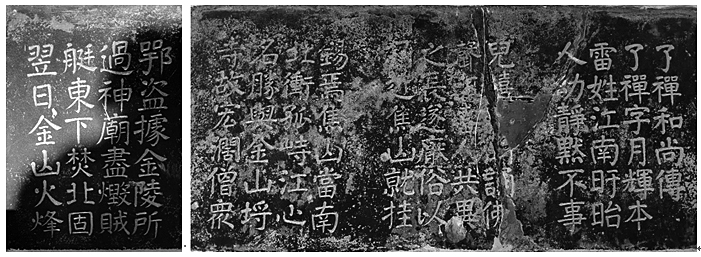 了禪和尚傳
了禪字月輝本
雷姓江南盱眙
人幼靜默不事
兒嬉誦佛
共異
之長遂厭俗以
焦山就挂
錫焉焦山當南
北衝孤峙江心
名勝與金山埒
寺故宏濶僧衆
鄂盗據金陵所
過神廟盡燬賊
艇東下焚北固
翌日金山火烽